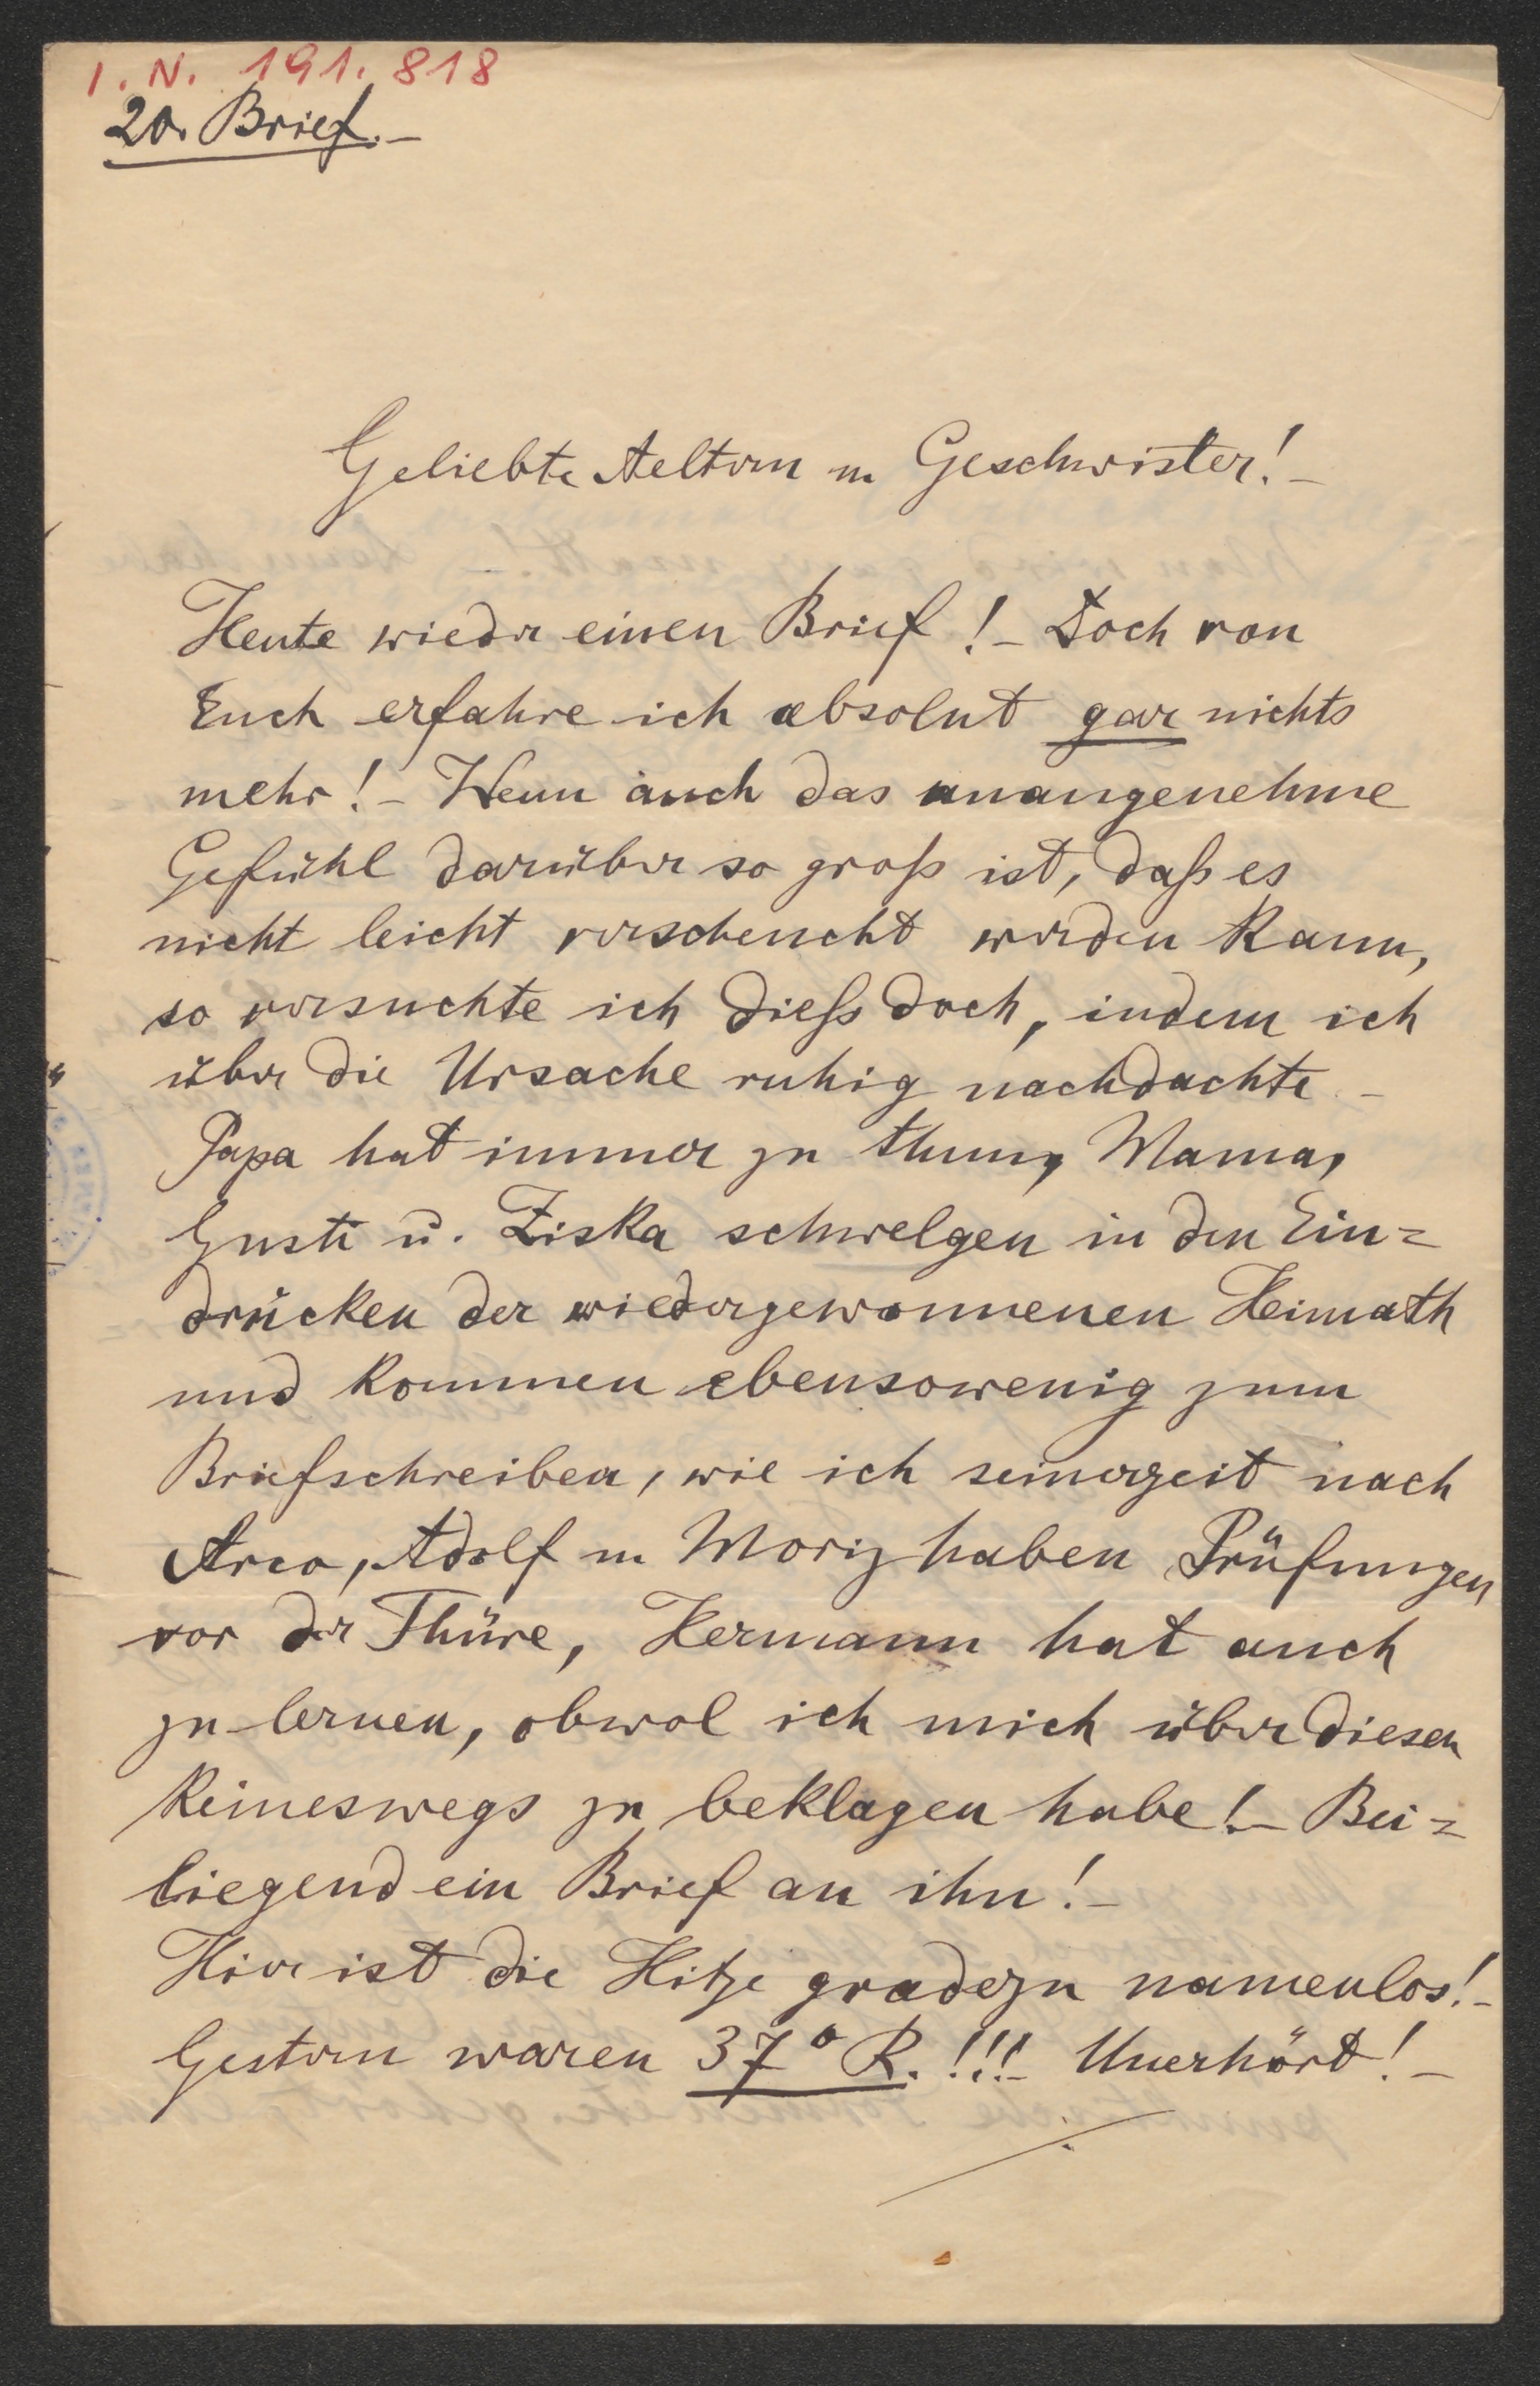 I. N. 191.818
20. Brief. –
Geliebte Aeltern u Geschwister! –
Heute wieder einen Brief! – Doch von
Euch erfahre ich absolut gar nichts
mehr! – Wenn auch das unangenehme
Gefühl darüber so groß ist, daß es
nicht leicht verscheucht werden kann,
so versuchte ich dieß doch, indem ich
über die Ursache ruhig nachdachte –
Papa hat immer zu thun, Mama,
Gusti u. Ziska schwelgen in den Ein=
drücken der wiedergewonnenen Heimath
und kommen ebensowenig zum
Briefschreiben, wie ich seinerzeit nach
Arco, Adolf u Moriz haben Prüfungen
vor der Thüre, Hermann hat auch
zu lernen, obwol ich mich über diesen
keineswegs zu beklagen habe! – Bei=
liegend ein Brief an ihn! –
Hier ist die Hitze gradezu namenlos! –
Gestern waren 37° R. !!! – Unerhört! –